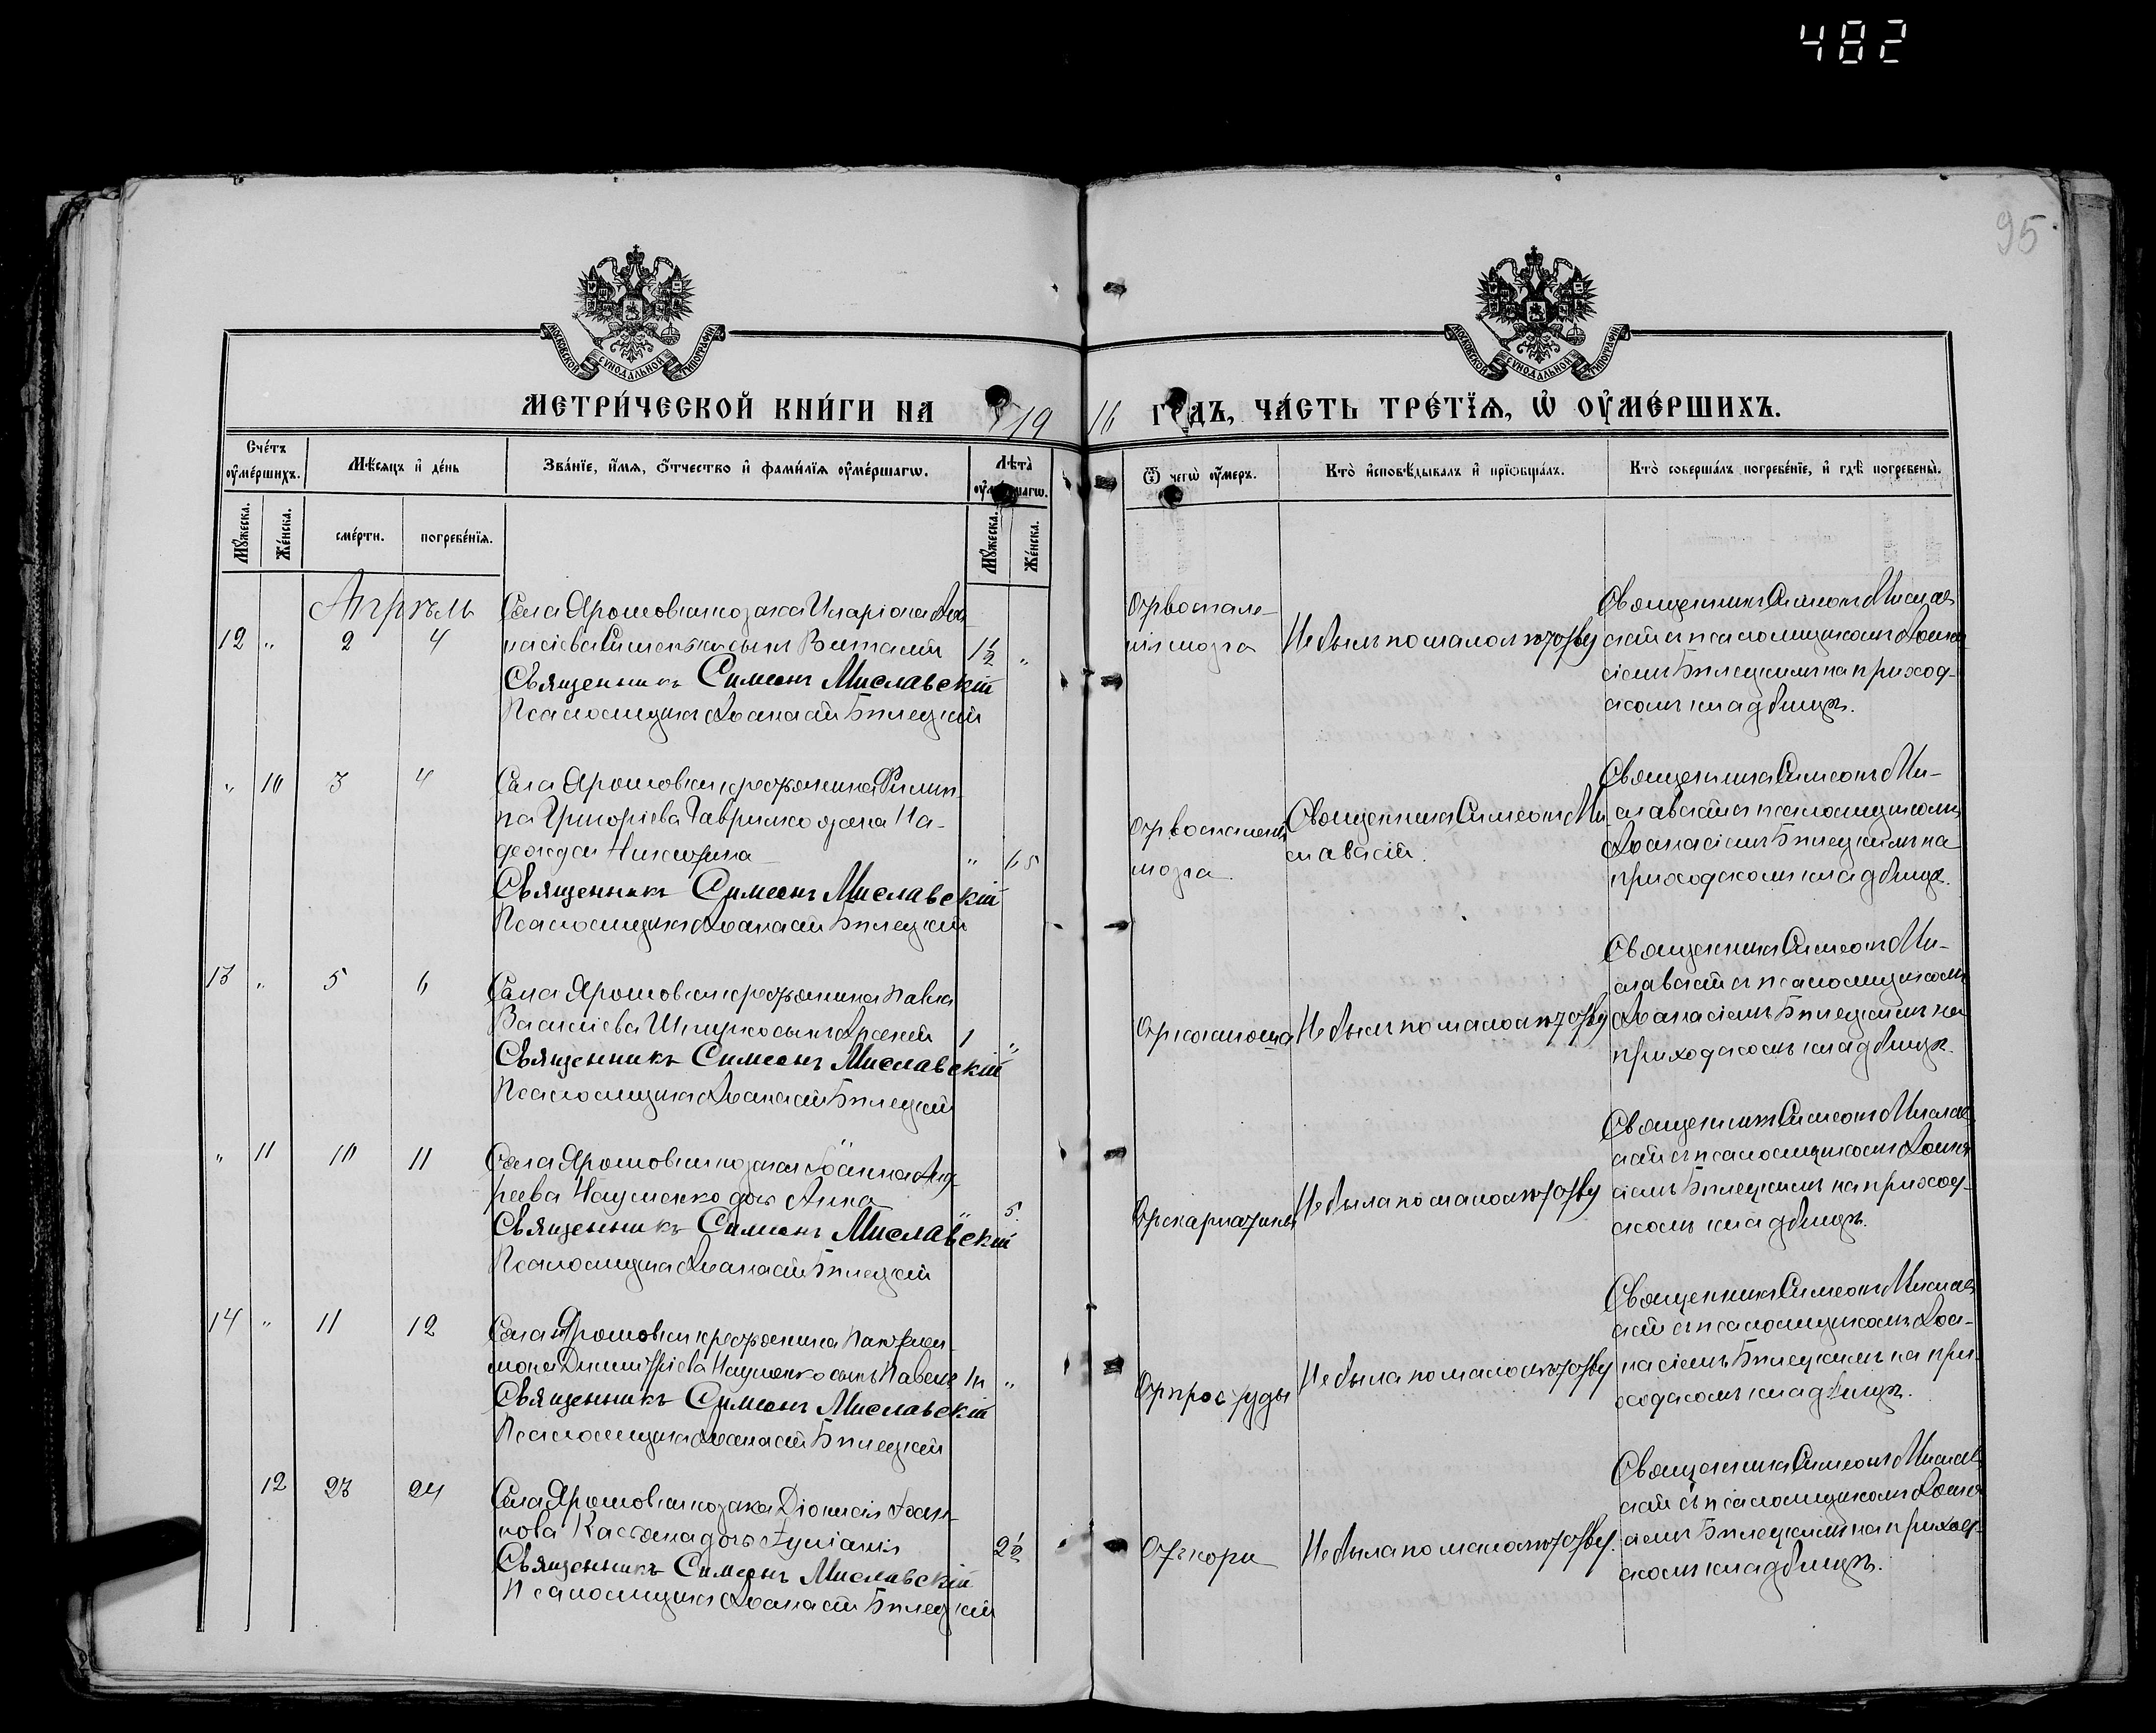 482
95
МОСКОВСКОЙ СѴНОДАЛЬНОЙ ТИПОГРАФІИ
МОСКОВСКОЙ СѴНОДАЛЬНОЙ ТИПОГРАФІИ
МЕТРИ́ЧЕСКОЙ КНИ́ГИ НА 1916 ГОДЪ, ЧА́СТЬ ТРЕ́ТЇѦ, Ѡ҆ ОУ҆МЕ́РШИХЪ.
Сче́тъ оу҆ме́ршихъ.
Мѣ́сѧцъ и҆ де́нь
Зва́нїе, и҆́мѧ, ѻ҆́тчество и҆ фами́лїѧ оу҆ме́ршагѡ.
Лѣ́та оу҆ме́ршагѡ.
Ѿ чегѡ̀ оу҆́меръ.
Кто̀ и҆сповѣ́дывалъ и҆ прїѡбща́лъ.
Кто̀ соверша́лъ погребе́нїе, и҆ гдѣ̀ погребены̀.
Мꙋ́жеска.
Же́нска.
сме́рти.
погребе́нїѧ.
Мꙋ́жеска.
Же́нска.
Апрѣль
12 " 2 4
Села Ярошовки козака Иларіона Аѳа-
насіева Сименъка сынъ Виталій 1½ "
Священникъ Симеонъ Миславскій
Псаломщикъ Аѳанасій Бѣлецкій
От воспале-
нія мозга
Не былъ по малолѣтству
Священникъ Симеонъ Мислав-
скій съ псаломщикомъ Аѳана-
сіемъ Бѣлецкимъ на приход-
скомъ кладбищѣ.
" 10 3 4
Села Ярошовки крестьянина Филип-
па Григоріева Гаврилко жена На-
дежда Никитина " 65
Священникъ Симеонъ Миславскій
Псаломщикъ Аѳанасій Бѣлецкій
От воспаленія
мозга.
Священникъ Симеонъ Ми-
славскій.
Священникъ Симеонъ Ми-
славскій съ псаломщикомъ
Аѳанасіемъ Бѣлецкимъ на
приходскомъ кладбищѣ.
13 " 5 6
Села Ярошовки крестьянина Павла
Василіева Шпирко сынъ 1 "
Священникъ Симеонъ Миславскій
Псаломщикъ Аѳанасій Бѣлецкій
От коклюша
Не былъ по малолѣтству
Священникъ Симеонъ Ми-
славскій съ псаломщикомъ
Аѳанасіемъ Бѣлецкимъ на
приходскомъ кладбищѣ.
" 11 10 11
Села Ярошовки козака Іоанна Анд-
реева Науменко дочь Анна " 5.
Священникъ Симеонъ Миславскій
Псаломщикъ Аѳанасій Бѣлецкій
От скарлатины
Не была по малолѣтству
Священникъ Симеонъ Мислав-
скій съ псаломщикомъ Аѳана-
сіемъ Бѣлецкимъ на приход-
скомъ кладбищѣ.
14 " 11 12
Села Ярошовки крестьянина Пантелей-
мона Димитріева Науменко сынъ Павелъ "
Священникъ Симеонъ Миславскій
Псаломщикъ Аѳанасій Бѣлецкій
От простуды
Не была по малолѣтству
Священникъ Симеонъ Мислав-
скій съ псаломщикомъ Аѳа-
насіемъ Бѣлецкимъ на при-
ходскомъ кладбищѣ.
12 23 24
Села Ярошовки козака Діонисія Іоан-
нова Касьяна дочь Іуліанія 2½
Священникъ Симеонъ Миславскій
Псаломщикъ Аѳанасій Бѣлецкій
Отъ кори
Не была по малолѣтству.
Священникъ Симеонъ Мислав-
скій съ псаломщикомъ Аѳана-
сіемъ Бѣлецкимъ на приход-
скомъ кладбищѣ.